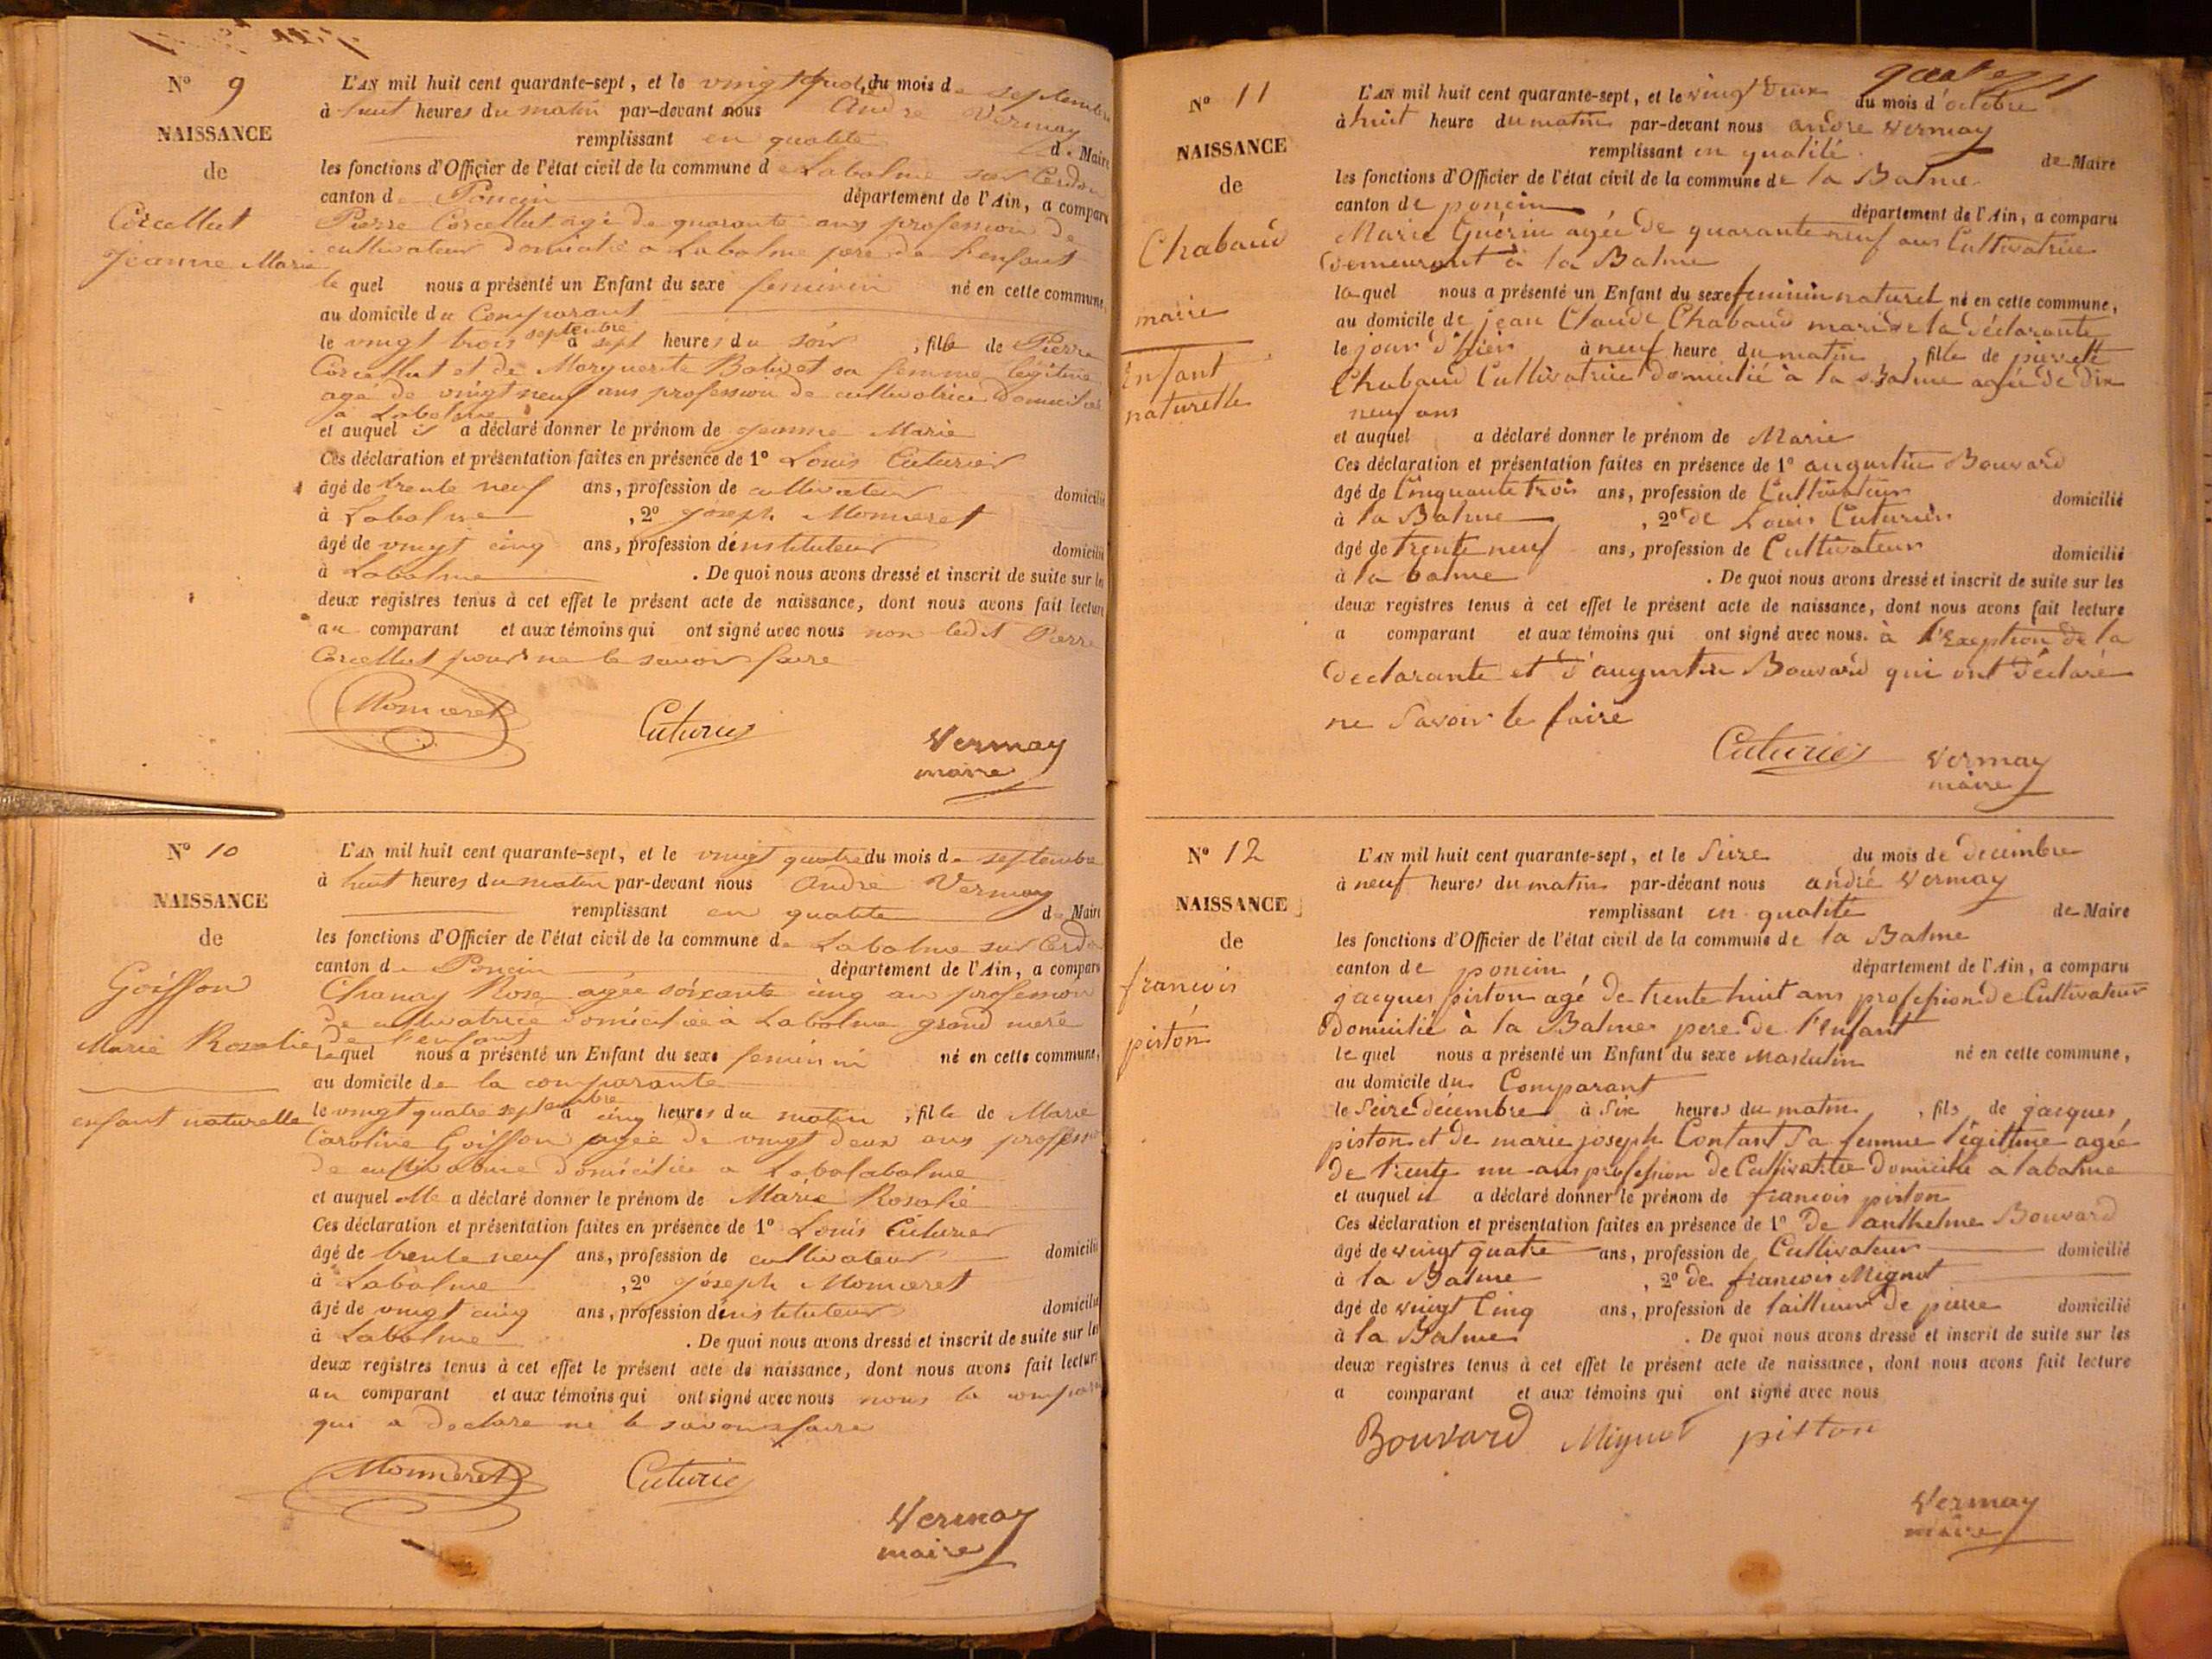 N° 9
NAISSANCE
de
Corcellut
Jeanne Marie
L'AN mil huit cent quarante-sept, et le vingt quatre du mois de septembre
à huit heures du matin par-devant nous André Vermay
remplissant en qualité de Maire
les fonctions d'Officier de l'état civil de la commune de Labalme sur Cerdon
canton de Poncin département de l'Ain, a comparu
Pierre Corcellut agé de quarante ans profession de
cultivateur domicilié a Labalme pere de l'enfant
le quel nous a présenté un Enfant du sexe feminin né en cette commune,
au domicile du Comparant
le vingt trois septembre à sept heures du soir, fille de Pierre
Corcellut et de Marguerite Bolivet sa femme légitime
agé de vingt neuf ans profession de cultivatrice domiciliée
à Labalme
et auquel il a déclaré donner le prénom de Jeanne Marie
Ces déclaration et présentation faites en présence de 1° Louis Cuturier
âgé de trente neuf ans, profession de cultivateur domicilié
à Labalme, 2° Joseph Monneret
âgé de vingt cinq ans, profession d'instituteur domicilié
à Labalme. De quoi nous avons dressé et inscrit de suite sur les
deux registres tenus à cet effet le présent acte de naissance, dont nous avons fait lecture
au comparant et aux témoins qui ont signé avec nous non ledit Pierre
Corcellut pour ne le savoir faire
Monneret Cuturier Vermay
maire
N° 10
NAISSANCE
de
Goiffon
Marie Rosalie
enfant naturelle
L'AN mil huit cent quarante-sept, et le vingt quatre du mois de septembre
à huit heures du matin par-devant nous André Vermay
remplissant en qualité de Maire
les fonctions d'Officier de l'état civil de la commune de Labalme sur Cerdon
canton de Poncin département de l'Ain, a comparu
Chanay Rose agée soixante cinq an profession
de cultivatrice domiciliée à Labalme grand mere
de l'enfant
lequel nous a présenté un Enfant du sexe feminin né en cette commune,
au domicile de la comparante
le vingt quatre septembre à cinq heures du matin, fille de Marie
Caroline Goiffon agée de vingt deux ans profession
de cultivatrice domiciliée a Labalabalme
et auquel elle a déclaré donner le prénom de Marie Rosalie
Ces déclaration et présentation faites en présence de 1° Louis Cuturier
âgé de trente neuf ans, profession de cultivateur domicilié
à Labalme, 2° Joseph Monneret
âgé de vingt cinq ans, profession d'instituteur domicilié
à Labalme. De quoi nous avons dressé et inscrit de suite sur les
deux registres tenus à cet effet le présent acte de naissance, dont nous avons fait lecture
au comparant et aux témoins qui ont signé avec nous nous la compara
qui a declare ne le savoir faire
Monneret Cuturier
Vermay
maire
N° 11
NAISSANCE
de
Chabaud
marie
Enfant
naturelle
L'AN mil huit cent quarante-sept, et le vingt deux du mois d'octobre
à huit heure du matin par-devant nous andré vermay
remplissant en qualité de Maire
les fonctions d'Officier de l'état civil de la commune de la Balme
canton de poncin département de l'Ain, a comparu
Marie Guérin agée de quarante neuf ans Cultivatrice
demeurant à la Balme
laquel nous a présenté un Enfant du sexe feminin naturel né en cette commune,
au domicile de jean Claude Chabaud mari de la déclarante
le jour d'hier à neuf heure du matin, fille de pierrette
Chabaud Cultivatrice domicilié à la Balme agée de dix
neuf ans
et auquel a déclaré donner le prénom de Marie
Ces déclaration et présentation faites en présence de 1° augustin Bouvard
âgé de Cinquante trois ans, profession de Cultivateur domicilié
à la Balme, 2° de Louis Cuturier
âgé de trente neuf ans, profession de Cultivateur domicilié
à la balme. De quoi nous avons dressé et inscrit de suite sur les
deux registres tenus à cet effet le présent acte de naissance, dont nous avons fait lecture
a comparant et aux témoins qui ont signé avec nous. à l'exception de la
declarante et d'augustin Bouvard qui ont déclaré
ne savoir le faire
Cuturier Vermay
maire
N° 12
NAISSANCE
de
francois
piston
L'AN mil huit cent quarante-sept, et le seize du mois de décembre
à neuf heures du matin par-devant nous andré vermay
remplissant en qualité de Maire
les fonctions d'Officier de l'état civil de la commune de la Balme
canton de poncin département de l'Ain, a comparu
jacques piston agé de trente huit ans profession de Cultivateur
domicilié à la Balme pere de l'enfant
le quel nous a présenté un Enfant du sexe Masculin né en cette commune,
au domicile du Comparant
le seize décembre à six heures du matin, fils de jacques
piston et de marie joseph Contant sa femme légittime agée
de trente un ans profession de Cultivatrice domicilié a labalme
et auquel il a déclaré donner le prénom de francois piston
Ces déclaration et présentation faites en présence de 1° De anthelme Bouvard
âgé de vingt quatre ans, profession de Cultivateur domicilié
à la Balme, 2° de francois Mignot
âgé de vingt Cinq ans, profession de tailleur de pierre domicilié
à la Balme. De quoi nous avons dressé et inscrit de suite sur les
deux registres tenus à cet effet le présent acte de naissance, dont nous avons fait lecture
a comparant et aux témoins qui ont signé avec nous
Bouvard Mignot piston
Vermay
maire